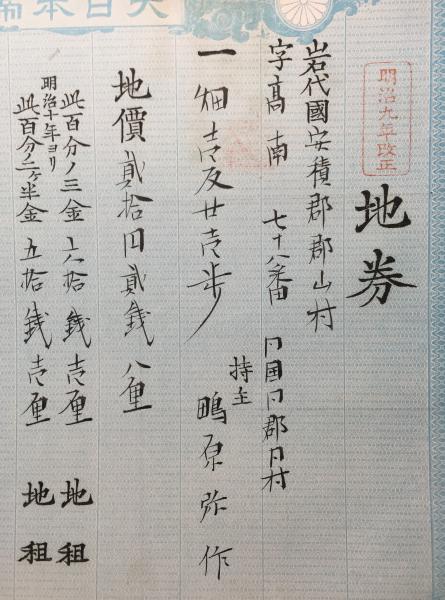 大日本帝
明治九年改正
地券
岩代國安積郡郡山村
字高南 七十八番 同国同郡同村
持主
一畑壱反廿壱歩 鴫原弥作
地價貳拾円貳銭八厘
此百分ノ三金六拾銭壱厘 地租
明治十年ヨリ
此百分ノ二ヶ半金五拾銭壱厘 地租